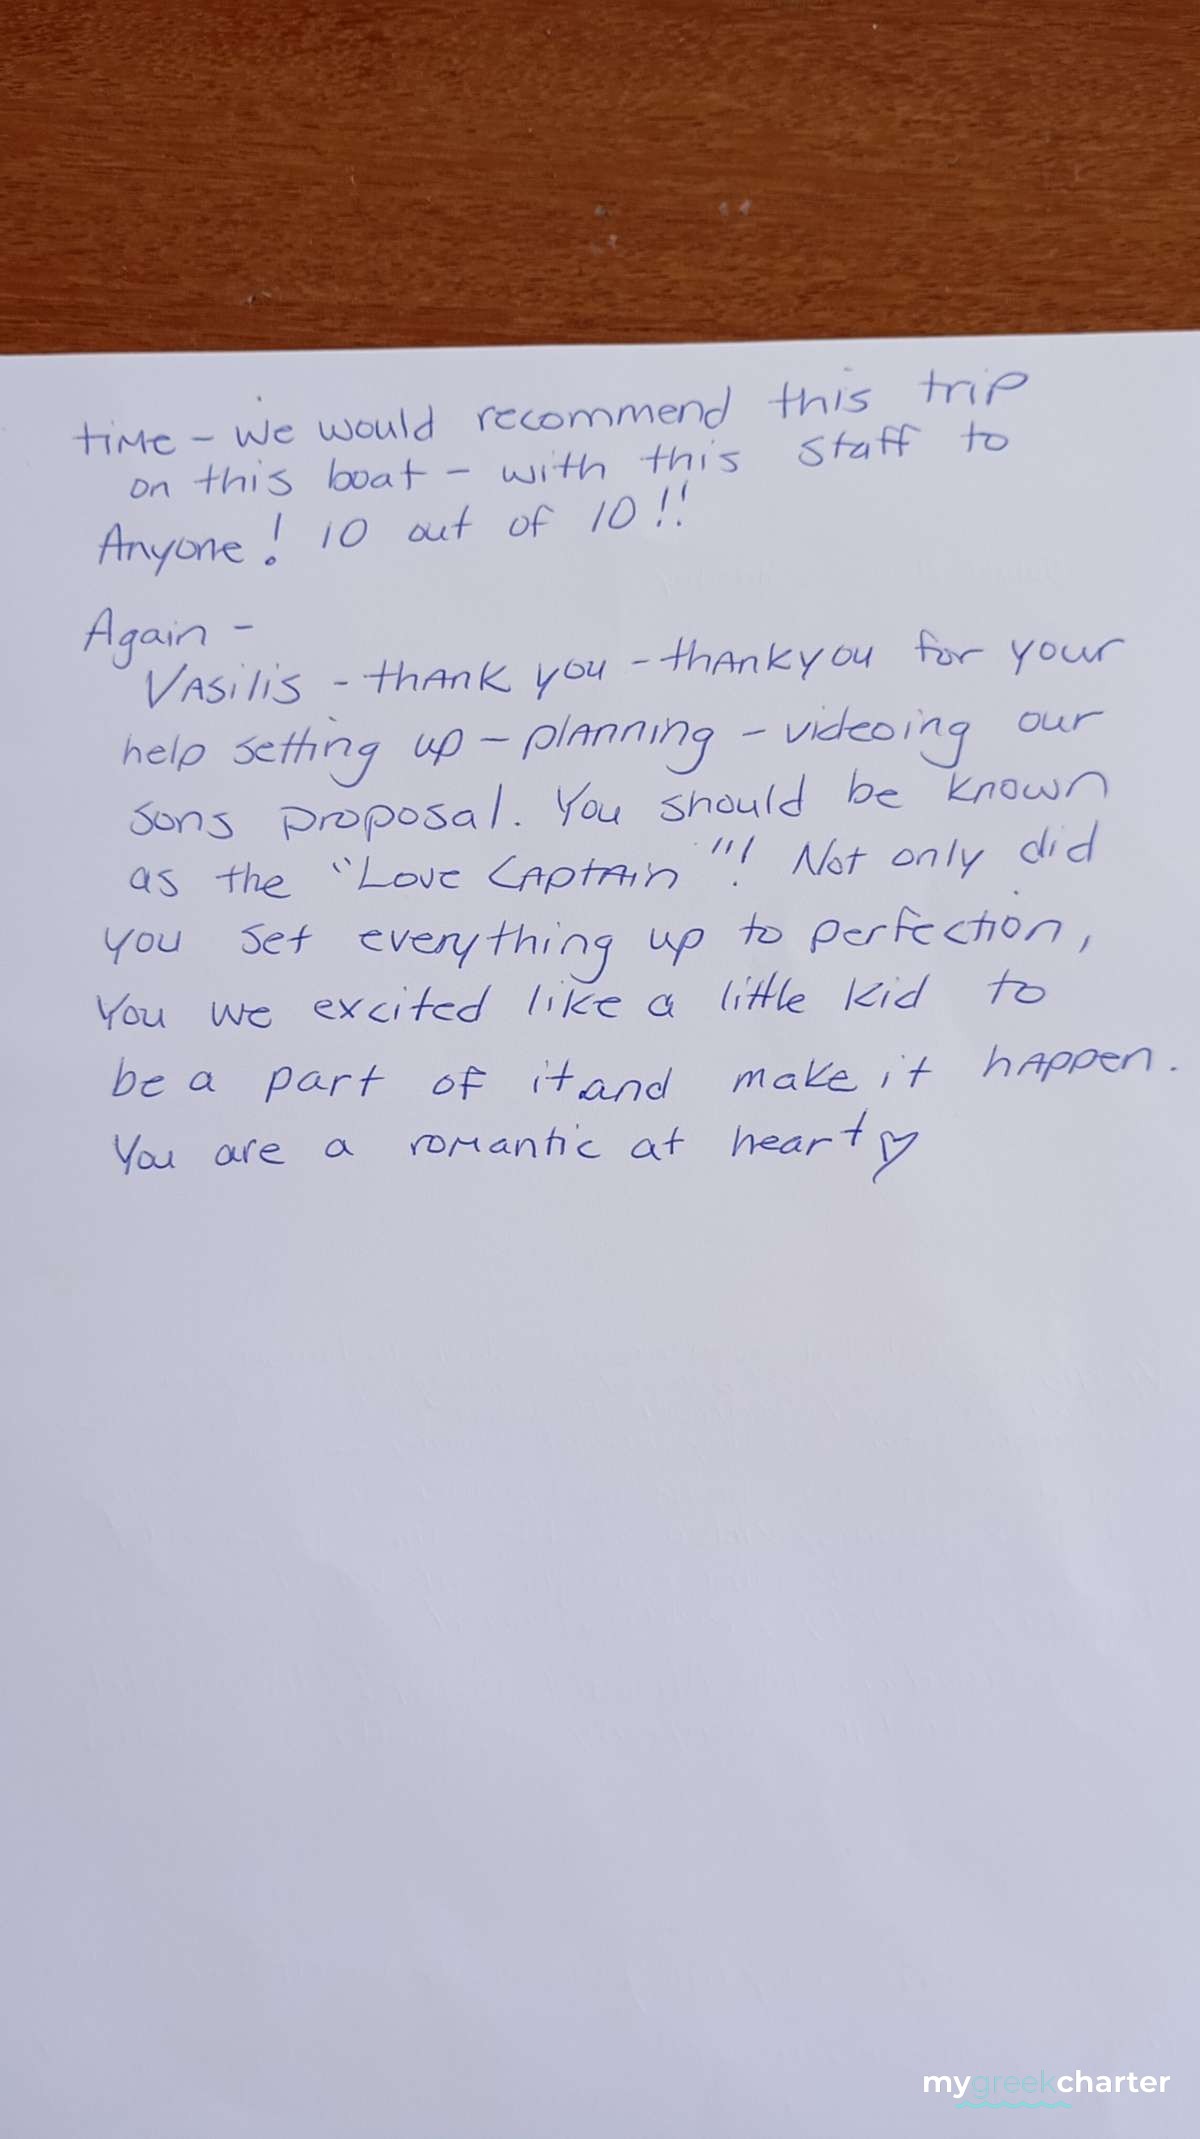 time - We would recommend this trip
on this boat - with this staff to
Anyone! 10 out of 10!!
Again -
Vasilis - thank you - thankyou for your
help setting up - planning - videoing our
sons proposal. You should be known
as the "Love Captain"!! Not only did
you set everything up to perfection,
You we excited like a little kid to
be a part of it and make it happen.
You are a romantic at heart ♡
mygreekcharter